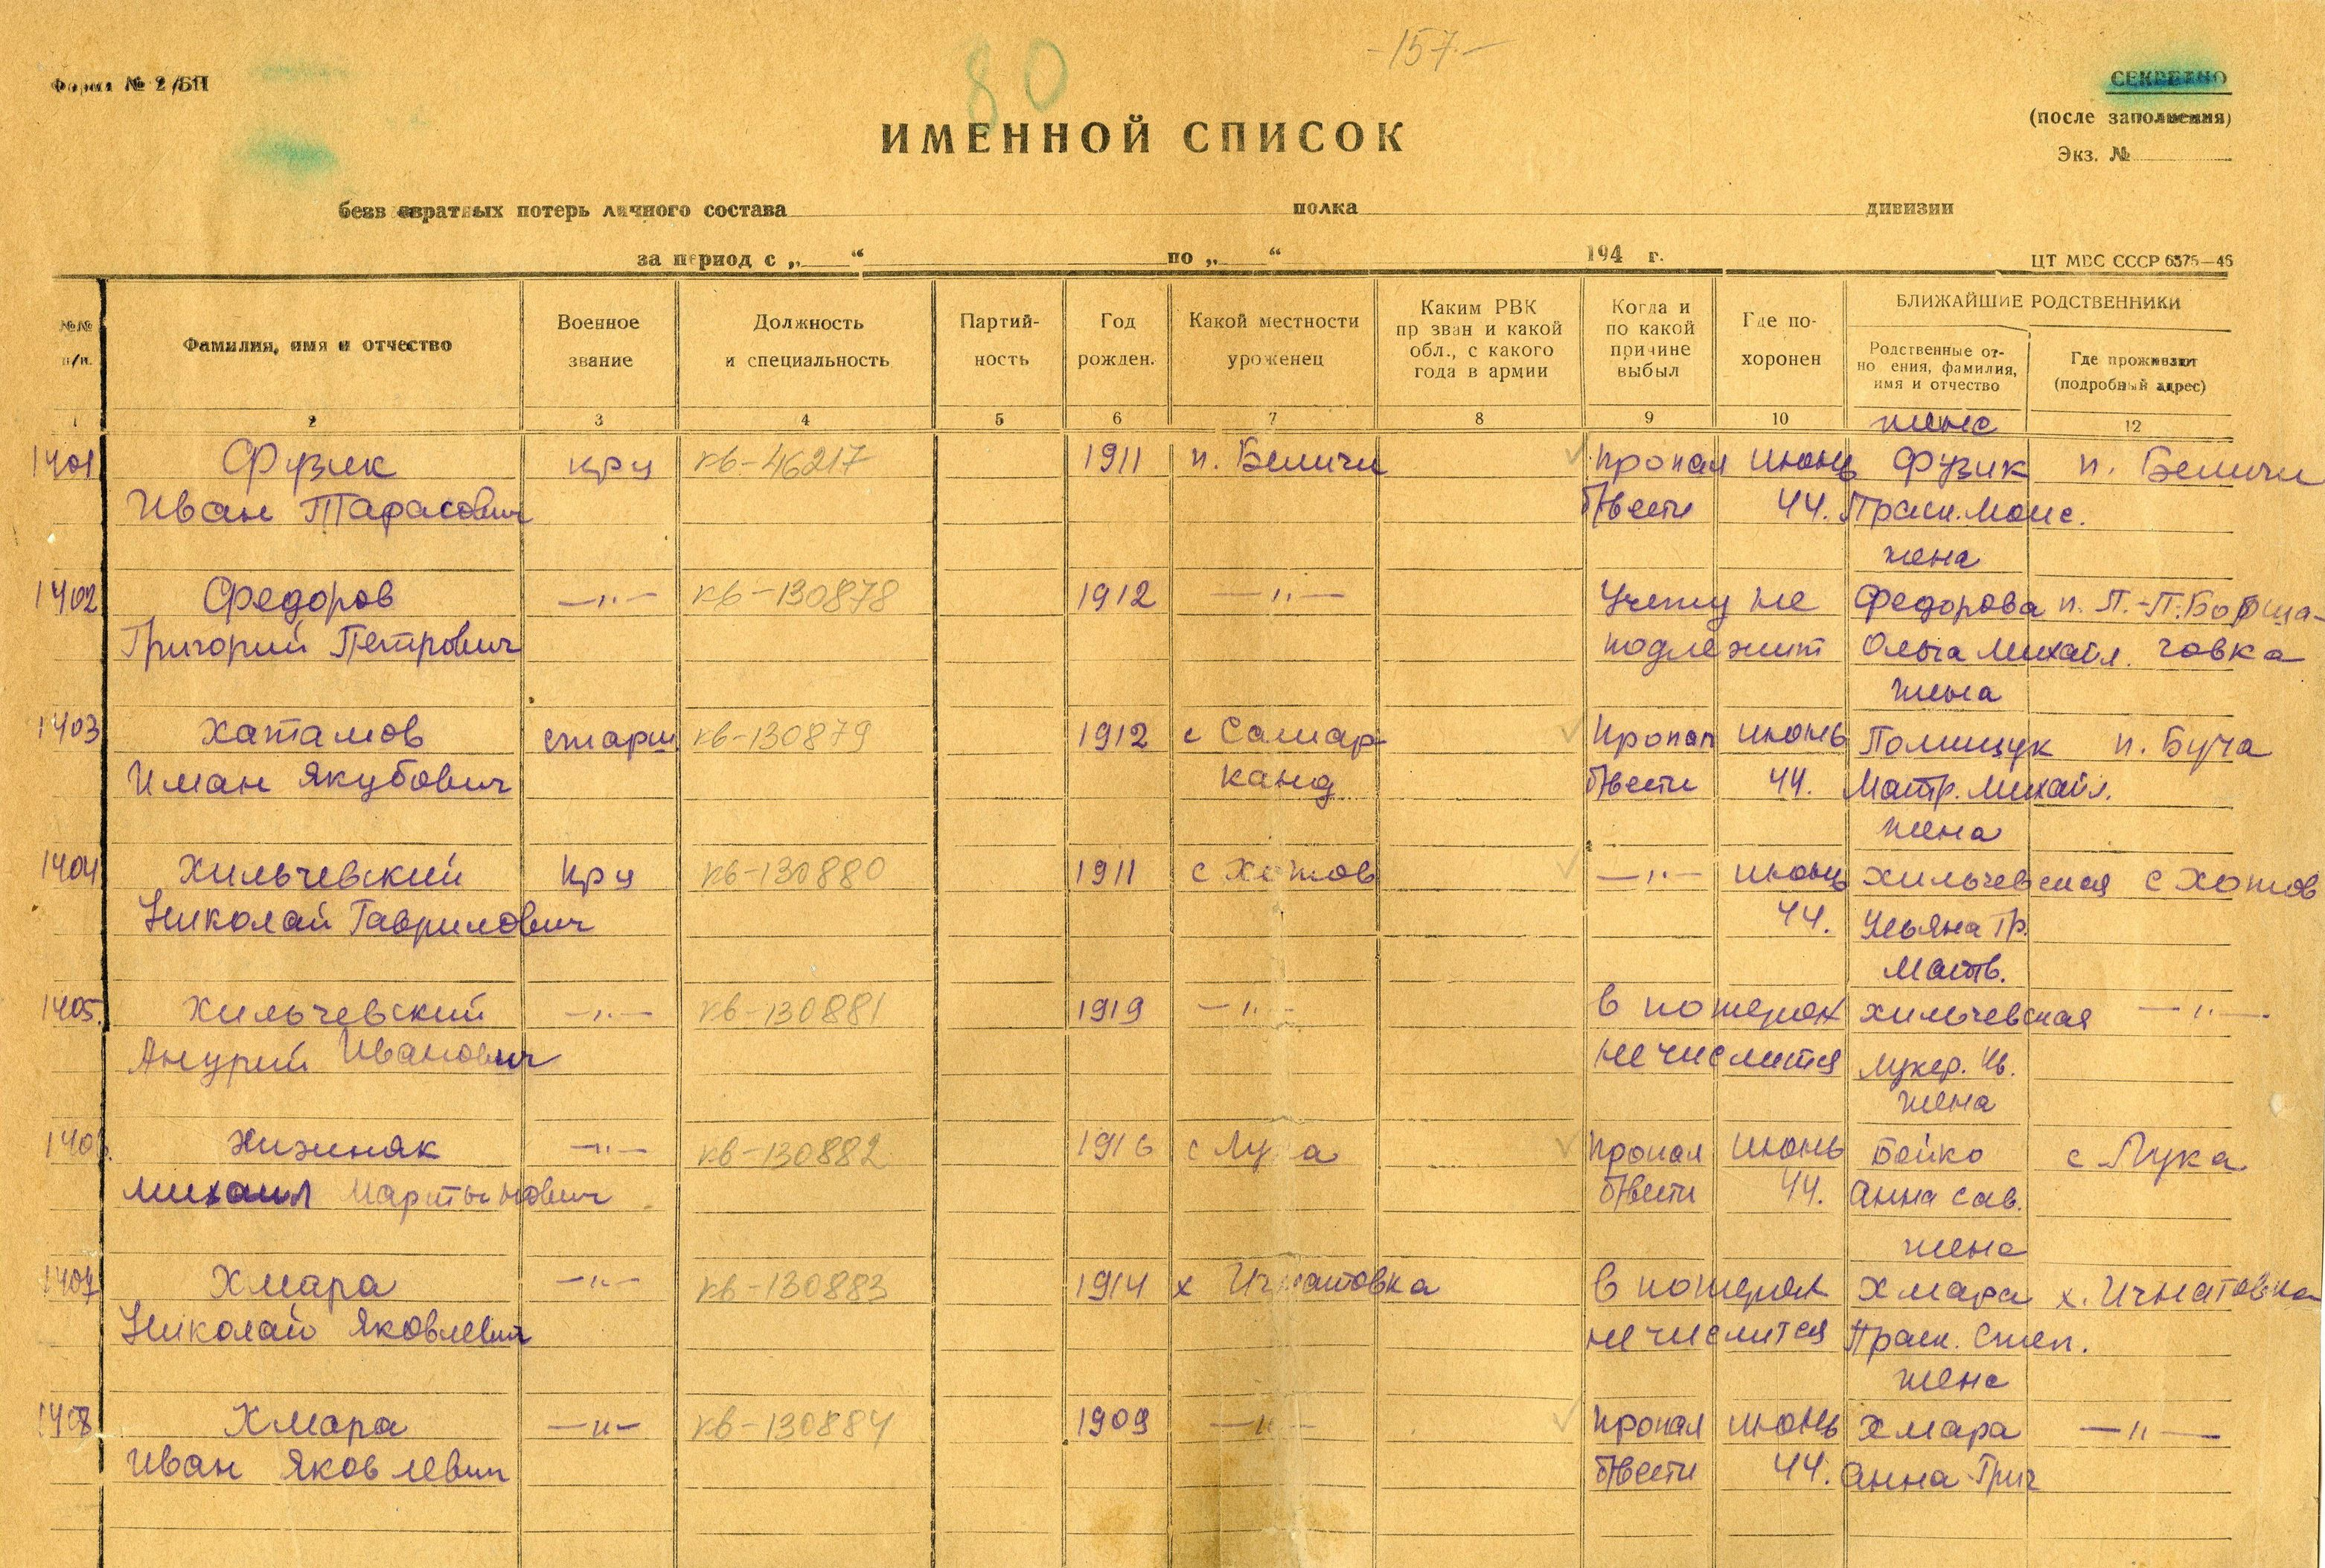 -157-
80
Форма № 2/БП
СЕКРЕТНО
(после заполнения)
Экз. №
ИМЕННОЙ СПИСОК
безвозвратных потерь личного состава полка дивизии
за период с „ “ по „ “ 194 г.
ЦТ МВС СССР 6375—46
№№ п/п.
Фамилия, имя и отчество
Военное звание
Должность и специальность
Партий-
ность
Год рожден.
Какой местности уроженец
Каким РВК
пр зван и какой
обл., с какого
года в армии
Когда и
по какой
причине
выбыл
Где по-
хоронен
БЛИЖАЙШИЕ РОДСТВЕННИКИ
Родственные от-
но ения, фамилия,
имя и отчество
Где проживают
(подробный адрес)
1 2 3 4 5 6 7 8 9 10 12
жена
1401 Фузик кр-ц кв-46217 1911 п. Беличи пропал июнь Фузик п. Беличи
Иван Тарасович б/вести 44. Праск. Моис.
жена
1402 Федоров —"— кв-130878 1912 —"— Учету не Федорова п. П.-П. Борща-
Григорий Петрович подлежит Ольга Михайл. говка
жена
1403 Хатамов старш кв-130879 1912 г Самар- пропал июнь Полищук п. Буча
Иман Якубович канд б/вести 44. Матр. Михайл.
жена
1404 Хильчевский кр-ц кв-130880 1911 с Хотов —"— июнь Хильчевская с Хотов
Николай Гаврилович 44. Ульяна Гр.
мать.
1405. Хильчевский —"— кв-130881 1919 —"— в потерях Хильчевская —"—
Андрий Иванович не числится Лукер. Ив.
жена
1406. Хижняк —"— кв-130882 1916 с Лука пропал июнь Бойко с Лука
Михаил Мартынович б/вести 44. Анна Сав.
жена
1407 Хмара —"— кв-130883 1914 х Игнатовка в потерях Хмара х. Игнатовка
Николай Яковлевич не числится Праск. Степ.
жена
1408 Хмара —"— кв-130884 1909 —"— пропал июнь Хмара —"—
Иван Яковлевич б/вести 44. Анна Григ